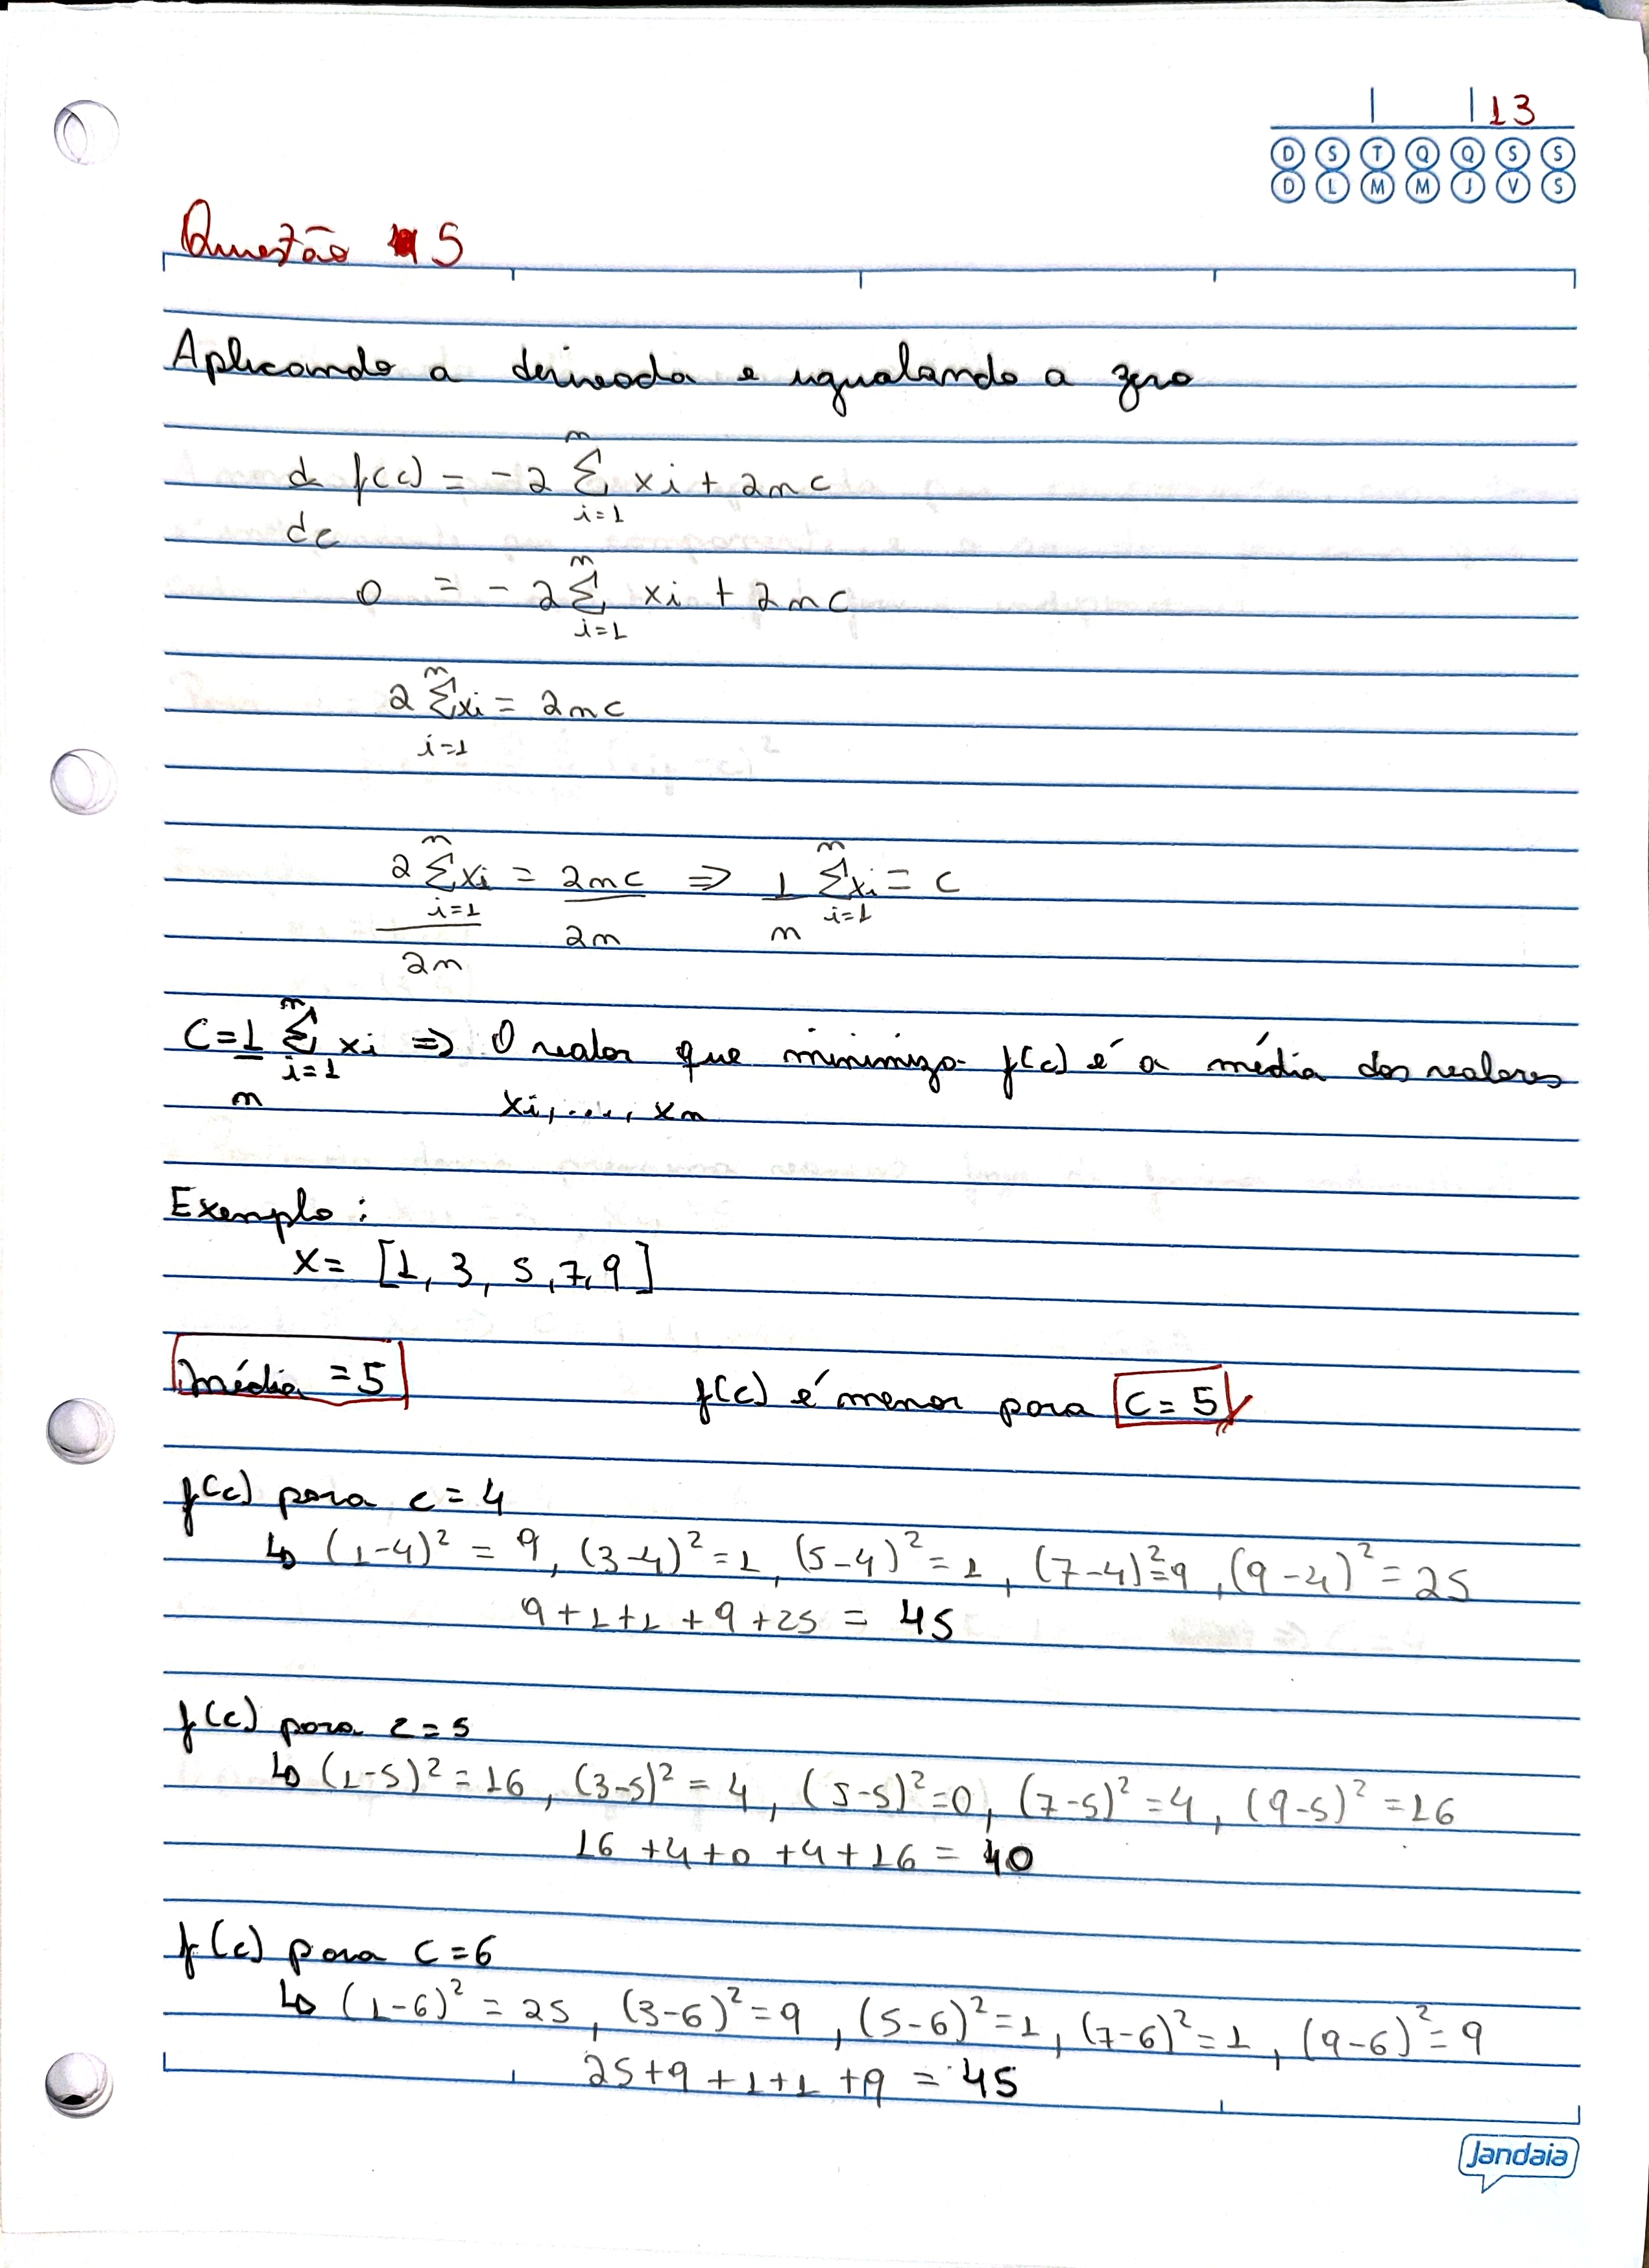 13
D S T Q Q S S
D L M M J V S
Questão 5
Aplicando a derivada e igualando a zero
d f(c) = -2 n∑i=1 xi + 2nc
dc
0 = -2 n∑i=1 xi + 2nc
2 n∑i=1 xi = 2nc
2 n∑i=1 xi / 2n = 2nc / 2n ⇒ 1/n n∑i=1 xi = c
C = 1/n n∑i=1 xi ⇒ O valor que minimiza f(c) é a média dos valores
xi, ..., xn
Exemplo:
X = [1, 3, 5, 7, 9]
média = 5 f(c) é menor para C = 5
f(c) para c = 4
↳ (1-4)² = 9, (3-4)² = 1, (5-4)² = 1, (7-4)² = 9, (9-4)² = 25
9+1+1+9+25 = 45
f(c) para c = 5
↳ (1-5)² = 16, (3-5)² = 4, (5-5)² = 0, (7-5)² = 4, (9-5)² = 16
16+4+0+4+16 = 40
f(c) para c = 6
↳ (1-6)² = 25, (3-6)² = 9, (5-6)² = 1, (7-6)² = 1, (9-6)² = 9
25+9+1+1+9 = 45
Jandaia